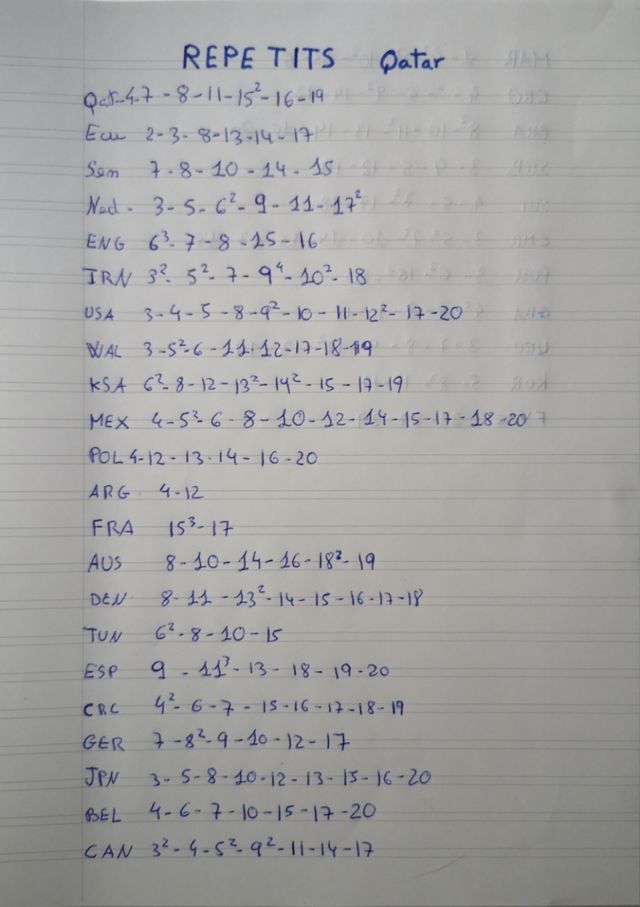 REPETITS Qatar
Qat-4-7-8-11-15²-16-19
Ecu 2-3-8-13-14-17
Sen 7-8-10-14-15
Ned- 3-5-6²-9-11-17²
ENG 6³-7-8-15-16
IRN 3²-5²-7-9⁴-10²-18
USA 3-4-5-8-9²-10-11-12²-17-20
WAL 3-5²-6-11-12-17-18-19
KSA 6²-8-12-13²-14²-15-17-19
MEX 4-5²-6-8-10-12-14-15-17-18-20
POL 4-12-13-14-16-20
ARG 4-12
FRA 15³-17
AUS 8-10-14-16-18²-19
DEN 8-11-13²-14-15-16-17-18
TUN 6²-8-10-15
ESP 9-11³-13-18-19-20
CRC 4²-6-7-15-16-17-18-19
GER 7-8²-9-10-12-17
JPN 3-5-8-10-12-13-15-16-20
BEL 4-6-7-10-15-17-20
CAN 3²-4-5²-9²-11-14-17